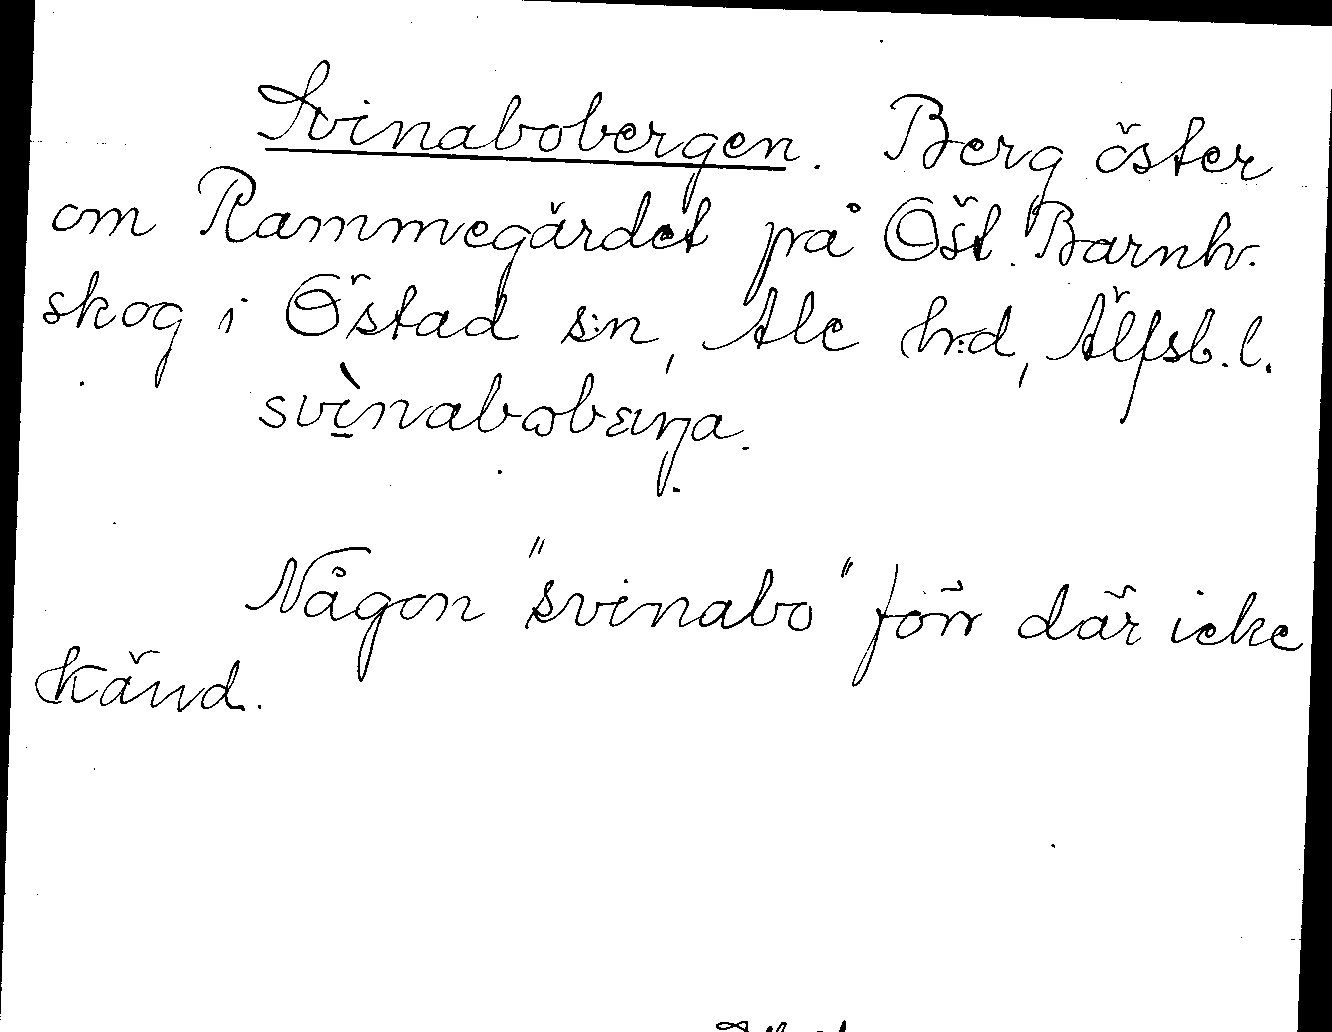 Svinabobergen. Berg öster
om Rammegärdet på Östl. Barnh.
skog i Östad s:n, Ale h:d, Älfsb. l.
Någon "svinabo" förr där icke
känd.